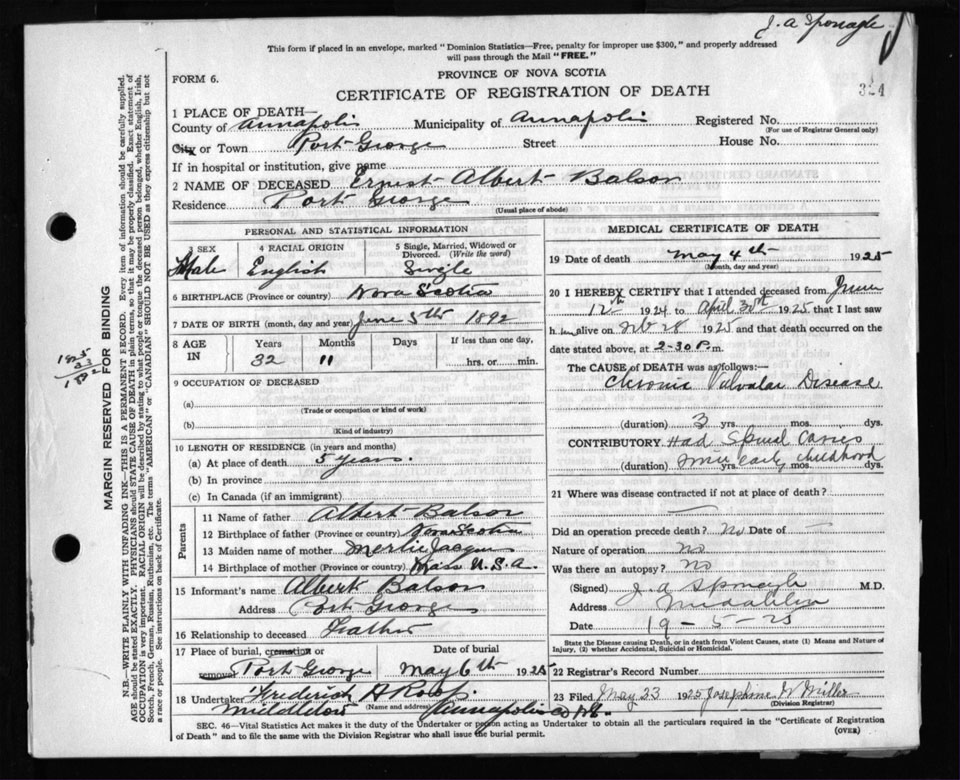 J. A Sponagle
This form if placed in an envelope, marked "Dominion Statistics—Free, penalty for improper use $300," and properly addressed
will pass through the Mail "FREE."
FORM 6.
PROVINCE OF NOVA SCOTIA
CERTIFICATE OF REGISTRATION OF DEATH
324
1 PLACE OF DEATH—
County of Annapolis Municipality of Annapolis Registered No.
(For use of Registrar General only)
City or Town Port George Street House No.
If in hospital or institution, give name
2 NAME OF DECEASED Ernest Albert Balson
Residence Port George
(Usual place of abode)
PERSONAL AND STATISTICAL INFORMATION
3 SEX 4 RACIAL ORIGIN 5 Single, Married, Widowed or
Divorced. (Write the word)
Male English Single
6 BIRTHPLACE (Province or country) Nova Scotia
7 DATE OF BIRTH (month, day and year) June 5th 1892
8 AGE IN Years Months Days If less than one day,
32 11 hrs. or min.
9 OCCUPATION OF DECEASED
(a)
(Trade or occupation or kind of work)
(b)
(Kind of industry)
10 LENGTH OF RESIDENCE (in years and months)
(a) At place of death 5 years.
(b) In province
(c) In Canada (if an immigrant)
Parents
11 Name of father Albert Balson
12 Birthplace of father (Province or country) Nova Scotia
13 Maiden name of mother
14 Birthplace of mother (Province or country) Mass U.S.A.
15 Informant's name Albert Balson
Address Port George
16 Relationship to deceased Father
17 Place of burial, cremation or Date of burial
removal Port George May 6th 1925
18 Undertaker Frederick A
(Name and address)
Middleton Annapolis Co N.S.
MEDICAL CERTIFICATE OF DEATH
19 Date of death May 4th 1925
(Month, day and year)
20 I HEREBY CERTIFY that I attended deceased from
12th 1924 to April 30th 1925 that I last saw
h im alive on Feb 28 1925 and that death occurred on the
date stated above, at 2-30 P.m.
The CAUSE of DEATH was as follows:—
Chronic Valvular Disease
(duration) 3 yrs. mos. dys.
CONTRIBUTORY Had Spinal Caries
(duration) since early childhood yrs. mos. dys.
21 Where was disease contracted if not at place of death?
—
Did an operation precede death? No Date of —
Nature of operation No
Was there an autopsy? No
(Signed) J. A Sponagle M.D.
Address Middleton
Date 19-5-25
State the Disease causing Death, or in death from Violent Causes, state (1) Means and Nature of
Injury, (2) whether Accidental, Suicidal or Homicidal.
22 Registrar's Record Number
23 Filed May 23 1925 Josephine W Miller
(Division Registrar)
SEC. 46—Vital Statistics Act makes it the duty of the Undertaker or person acting as Undertaker to obtain all the particulars required in the "Certificate of Registration
of Death" and to file the same with the Division Registrar who shall issue the burial permit.
(OVER)
MARGIN RESERVED FOR BINDING
1925
33
1892
N.B.—WRITE PLAINLY WITH UNFADING INK—THIS IS A PERMANENT RECORD. Every item of information should be carefully supplied.
AGE should be stated EXACTLY. PHYSICIANS should STATE CAUSE OF DEATH in plain terms, so that it may be properly classified. Exact statement of
OCCUPATION is very important. RACIAL ORIGIN will be described by stating to what people or tongue the deceased person belonged, whether English, Irish,
Scotch, French, German, Russian, Ruthenian, etc. The terms "AMERICAN" or "CANADIAN" SHOULD NOT BE USED as they express citizenship but not
a race or people. See instructions on back of Certificate.